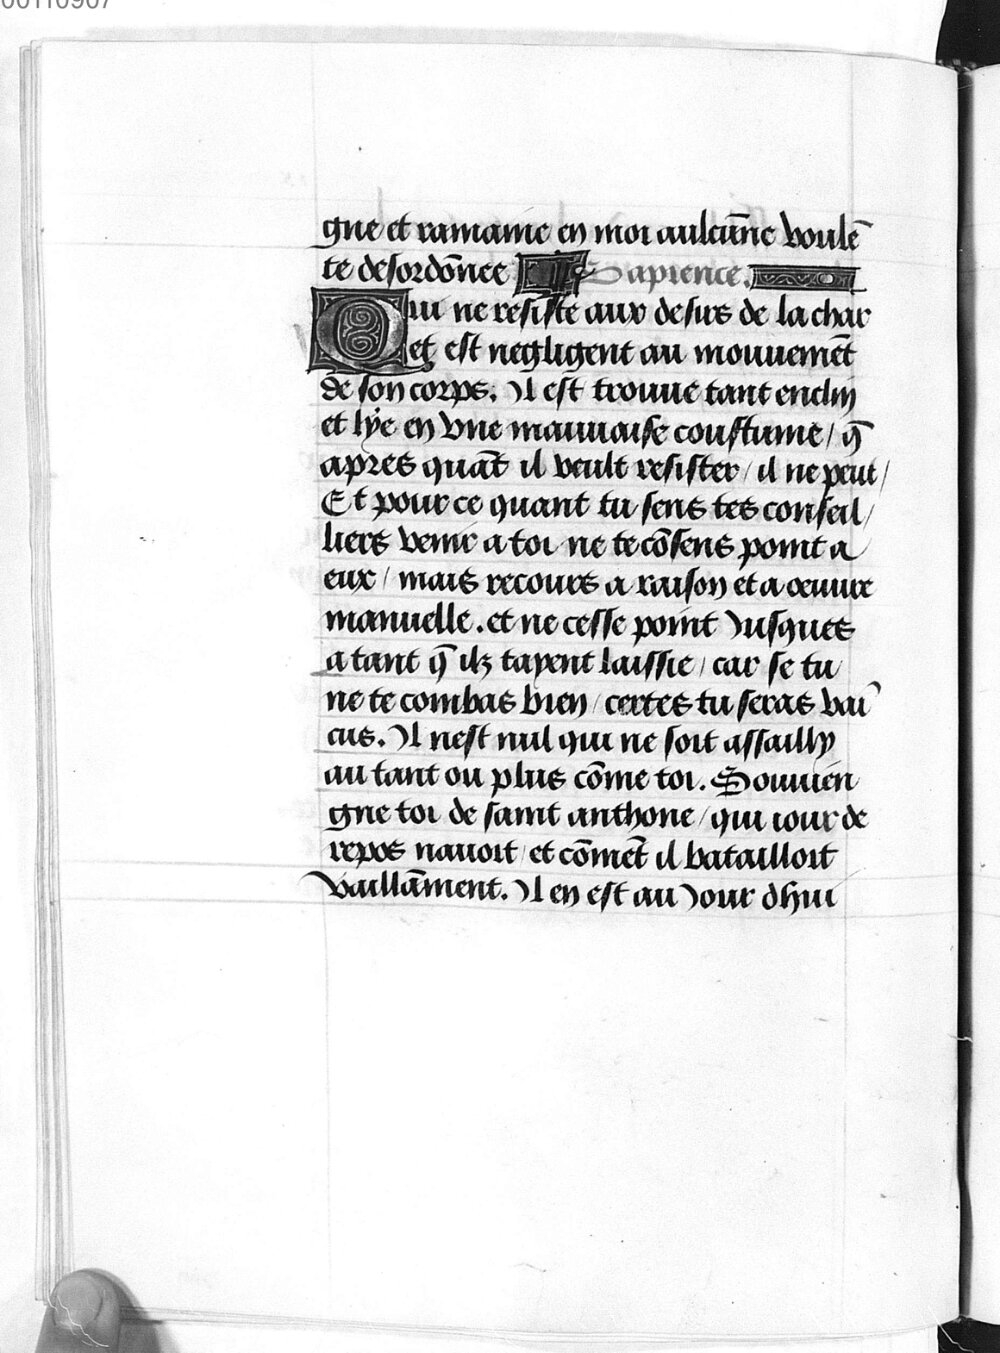 00110907
gne et ramaine en moi aulcūne voulē
te desordōnee Sapience.
Qui ne resiste aux desirs de la char
et est negligent au mouuemēt
de son corps. Il est trouue tant enclin
et lye en vne mauuaise coustume / q̄
apres quāt il veult resister / il ne peut /
Et pour ce quant tu sens tes conseil /
liers venir a toi ne te cōsens point a
eux / mais recours a raison et a œuure
manuelle . et ne cesse point Jusques
a tant q̄ ilz tayent laissie / car se tu
ne te combas bien / certes tu seras vaī
cus. Il nest nul qui ne soit assailly
au tant ou plus cōme toi. Souuien
gne toi de saint anthone / qui iour de
repos nauoit / et cōmēt il batailloit
vaillāment. Il en est au Jour dhui